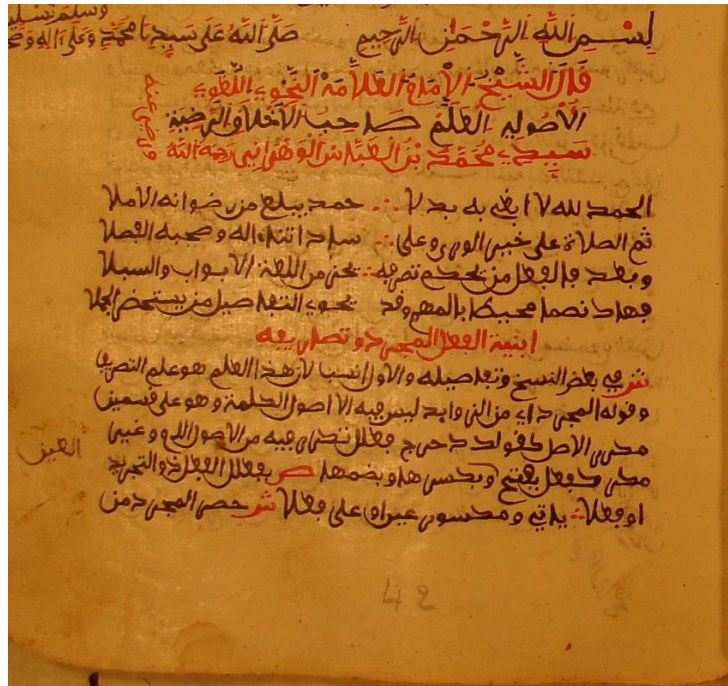 وسلم تسليما
بسم الله الرحمن الرحيم صلى الله على سيدنا محمد وعلى ءاله وصحبه
قال الشيخ الامام العلامة النحوي اللغوي
الاصولي العلم صاحب الاخلاق المرضية
سيدي محمد بن العباس الوهراني رحمه الله
ورضي عنه
الحمد لله لا ابغي به بدلا ∴ حمد يبلغ من رضوانه الاملا
ثم الصلاة على خير الورى وعلى ∴ ساداتنا ءاله وصحبه الفضلا
وبعد فالفعل من يحكم تصرفه ∴ يحز من اللغة الابواب والسبلا
فهاك نظما محيطا بالمهم وقد يحوي التفاصيل من يستحضر الجملا
ابنية الفعل المجرد وتصاريفه
ش في بعض النسخ وتفاصيله والاول انسب لان هذا العلم هو علم التصريف
وقوله المجرد اي من الزوايد ليس فيه الا اصول الكلمة وهو على قسمين
مكرر الاصل كقولك دحرج فعلل تكرر فيه من الاصول اللام وغير
مكرر كفعل بفتح وبكسرها وبضمها ص بفعلل الفعل ذو التجريد
العين
او فعلا ∴ ياتي ومكسور عين او على فعلا ش حصر المجرد من
42